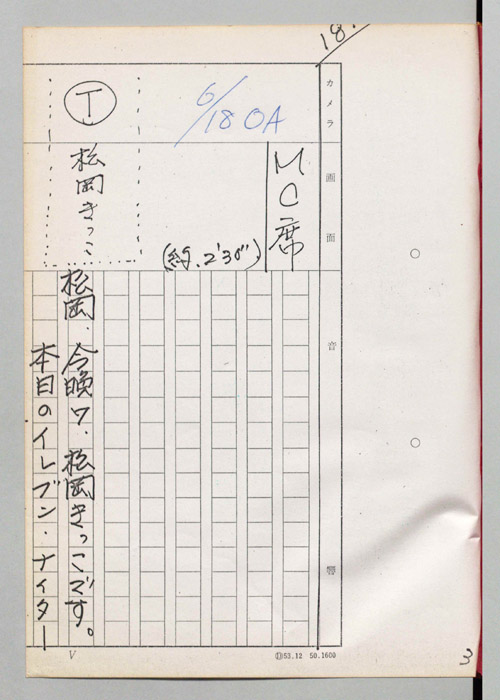 18.
カメラ
画面
音響
MC席
6/18 OA
(約.2'30")
T
松岡きっこ
松岡、今晩ワ、松岡きっこです。
本目のイレブン・ナイター
V
⑬53.12 50.1600
3